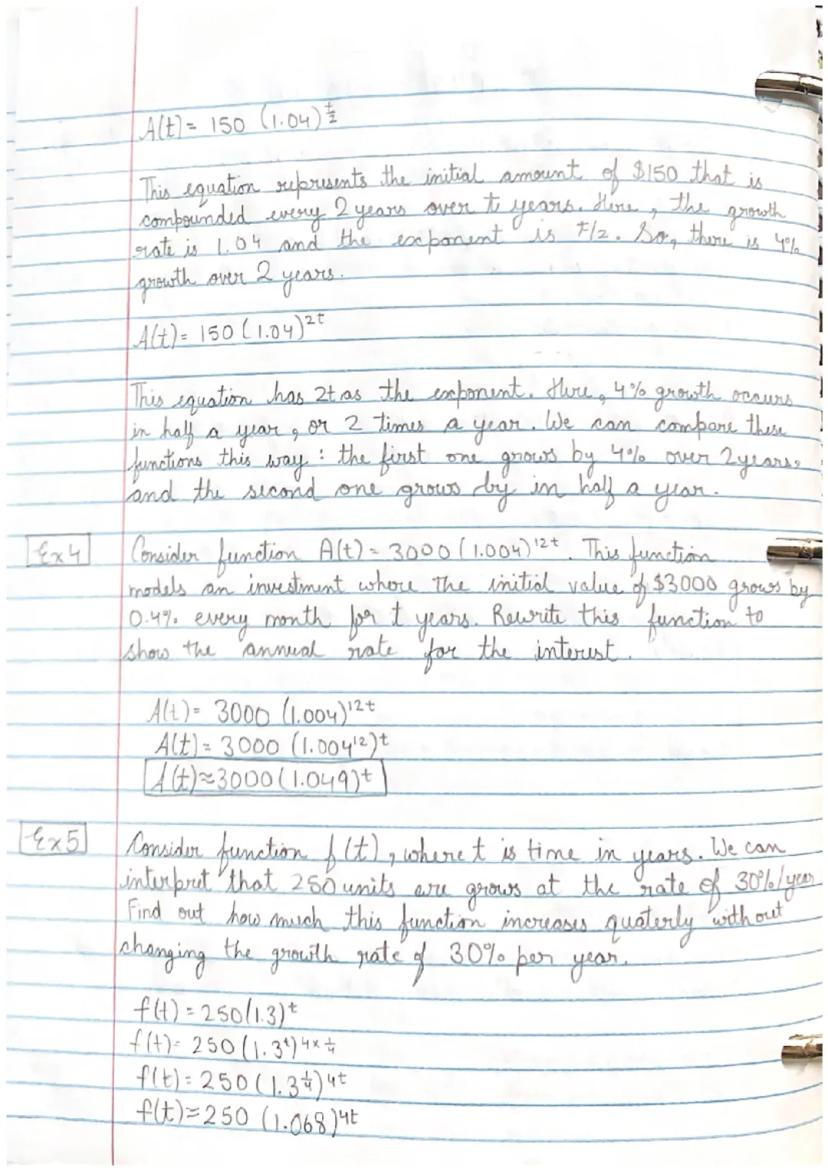 A(t) = 150 (1.04)^(t/2)
This equation represents the initial amount of $150 that is
compounded every 2 years over t years. Here, the growth
rate is 1.04 and the exponent is t/2. So, there is 4%
growth over 2 years.
A(t) = 150 (1.04)^(2t)
This equation has 2t as the exponent. Here, 4% growth occurs
in half a year, or 2 times a year. We can compare these
functions this way: the first one grows by 4% over 2 years,
and the second one grows by in half a year.
Ex 4 Consider function A(t) = 3000 (1.004)^(12t). This function
models an investment where the initial value of $3000 grows by
0.4% every month for t years. Rewrite this function to
show the annual rate for the interest.
A(t) = 3000 (1.004)^(12t)
A(t) = 3000 (1.004^(12))^t
A(t) ≈ 3000 (1.049)^t
Ex 5 Consider function f(t), where t is time in years. We can
interpret that 250 units are grows at the rate of 30%/year
Find out how much this function increases quaterly without
changing the growth rate of 30% per year.
f(t) = 250 (1.3)^t
f(t) = 250 (1.3^t)^(4×1/4)
f(t) = 250 (1.3^(1/4))^(4t)
f(t) ≈ 250 (1.068)^(4t)